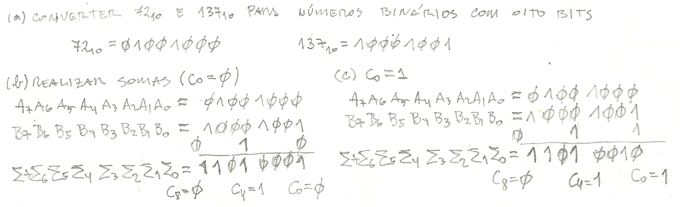 (a) CONVERTER 72₁₀ E 137₁₀ PARA NÚMEROS BINÁRIOS COM OITO BITS
72₁₀ = Ø1ØØ1ØØØ 137₁₀ = 1ØØØ1ØØ1
(b) REALIZAR SOMAS (C₀ = Ø)
A₇A₆ A₅ A₄ A₃ A₂A₁A₀ = Ø1ØØ 1ØØØ
B₇B₆ B₅ B₄ B₃ B₂B₁ B₀ = 1ØØØ 1ØØ1
Ø 1 Ø
Σ₇Σ₆Σ₅Σ₄ Σ₃Σ₂Σ₁Σ₀ = 11Ø1 ØØØ1
C₈=Ø C₄=1 C₀=Ø
(c) C₀ = 1
A₇A₆ A₅ A₄ A₃ A₂A₁A₀ = Ø1ØØ 1ØØØ
B₇B₆ B₅ B₄ B₃ B₂B₁ B₀ = 1ØØØ 1ØØ1
Ø 1 1
Σ₇Σ₆Σ₅Σ₄ Σ₃Σ₂Σ₁Σ₀ = 11Ø1 ØØ1Ø
C₈=Ø C₄=1 C₀=1